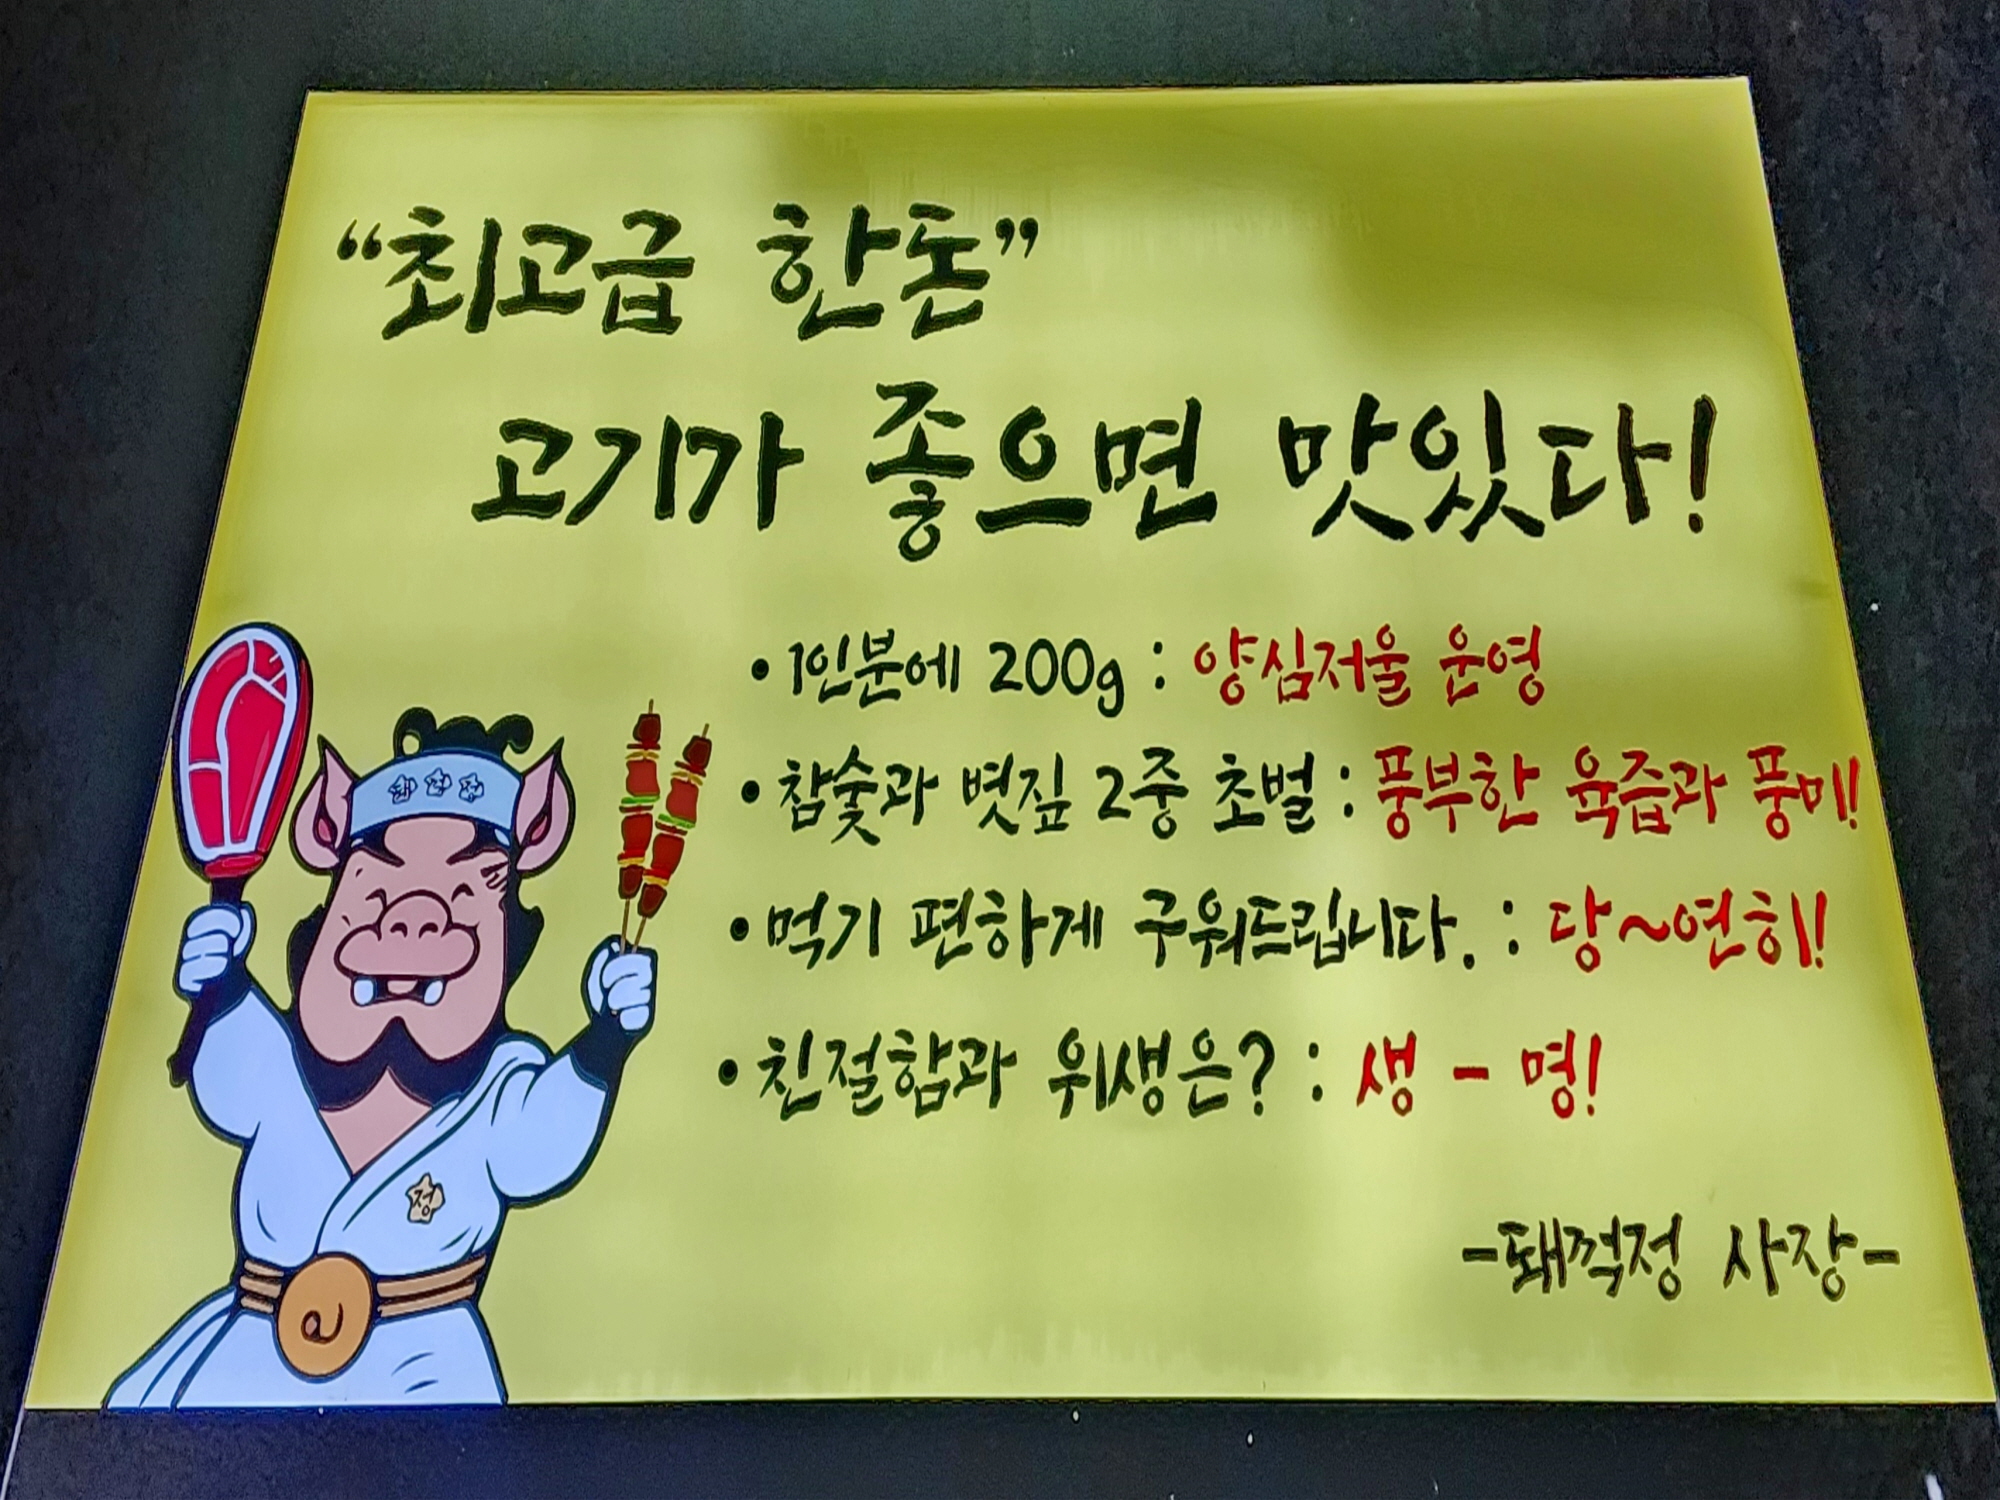 "최고급 한돈"
고기가 좋으면 맛있다!
• 1인분에 200g : 양심저울 운영
• 참숯과 볏짚 2중 초벌 : 풍부한 육즙과 풍미!
• 먹기 편하게 구워드립니다. : 당~연히!
• 친절함과 위생은? : 생 - 명!
정
-돼꺽정 사장-